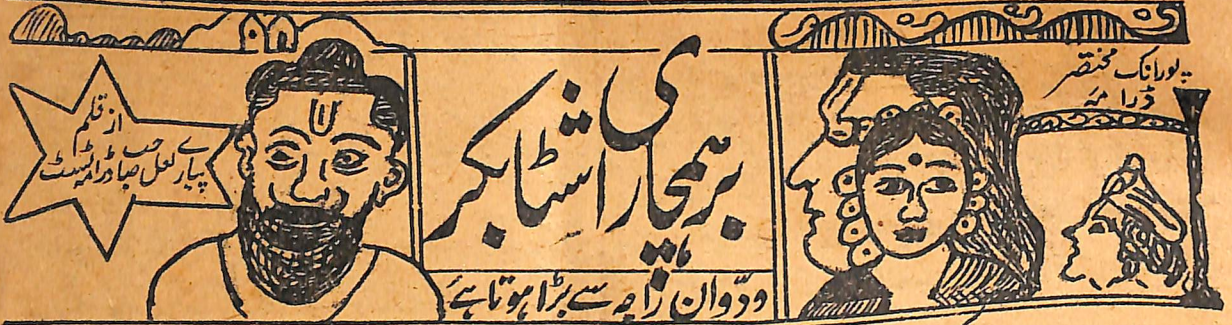 پورانک مختصر
ڈرامہ
برہمچاری اشٹابکر
ودّوان راجہ سے بڑا ہوتا ہے
از قلم
پیارے لعل صاحب ڈرامٹسٹ